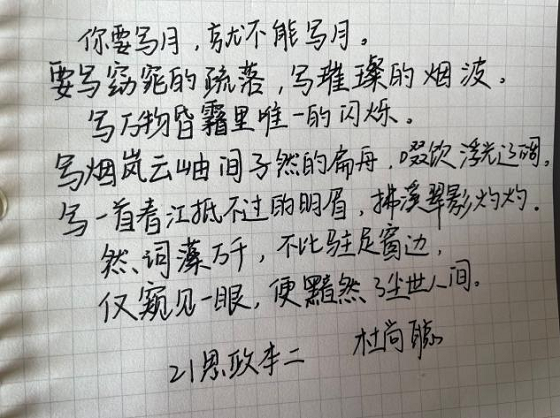 你要写月，就不能写月。
要写窈窕的疏落，写璀璨的烟波。
写万物昏霾里唯一的闪烁。
写烟岚云岫间孑然的扁舟，啜饮浮光辽阔。
写一首春江抵不过的明眉，拂溪翠影灼灼。
然，词藻万千，不比驻足窗边，
仅窥见一眼，便黯然了尘世人间。
21思政本二 杜尚聪